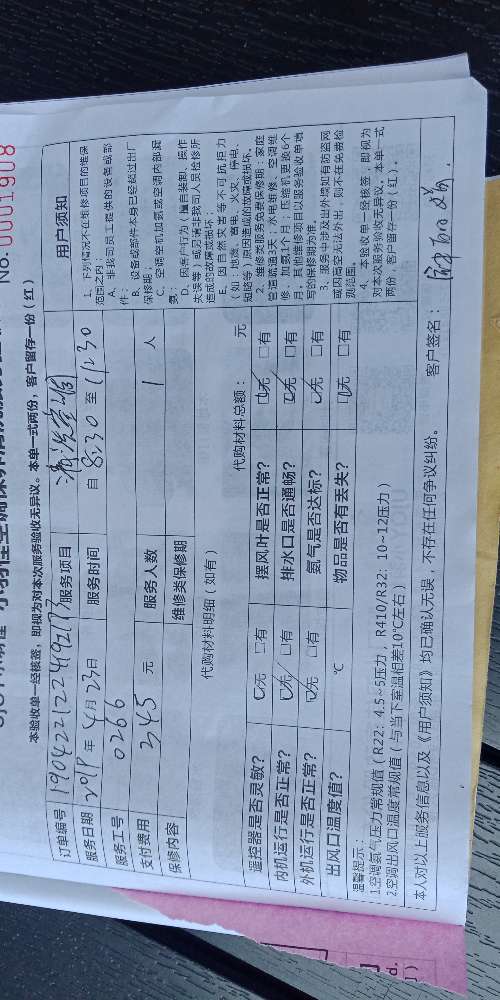 No. 0001908
本验收单一经核签，即视为对本次服务验收无异议。本单一式两份，客户留存一份（红）
订单编号 服务项目 清洗空调
服务日期 2019年4月23日 服务时间 自 8:30 至 11:30
服务工号 0266
支付费用 345 元 服务人数 1 人
保修内容 维修类保修期
用户须知
1、下列情况不在维修项目的维保范围之内：
A、非我司员工提供的设备或部件；
B、设备或部件本身已经超过出厂保修期；
C、空调空机加氨或空调内部漏氨；
D、因客户行为（擅自装卸、操作失误等）或非我司人员检修所造成的故障或损坏；
E、因自然灾害等不可抗拒力（如：地震、雷电、火灾、停电、短路等）原因造成的故障或损坏。
2、维修类服务免费保修期：家庭管道疏通3天；水电维修、空调维修、加氨1个月；压缩机更换6个月，其他维修项目以服务验收单填写的保修期为准。
3、服务中涉及出外墙如有防盗网或因高空无法外出，则不在免费检测范围。
4、本验收单一经核签，即视为对本次服务验收无异议。本单一式两份，客户留存一份（红）。
代购材料明细（如有） 代购材料总额： 元
遥控器是否灵敏？ 无 有 摆风叶是否正常？ 无 有
内机运行是否正常？ 无 有 排水口是否通畅？ 无 有
外机运行是否正常？ 无 有 氨气是否达标？ 无 有
出风口温度值？ ℃ 物品是否有丢失？ 无 有
温馨提示：
1.空调氨气压力常规值（R22：4.5~5压力，R410/R32：10~12压力）
2.空调出风口温度常规值（与当下室温相差10℃左右）
本人对以上服务信息以及《用户须知》均已确认无误，不存在任何争议纠纷。 客户签名：